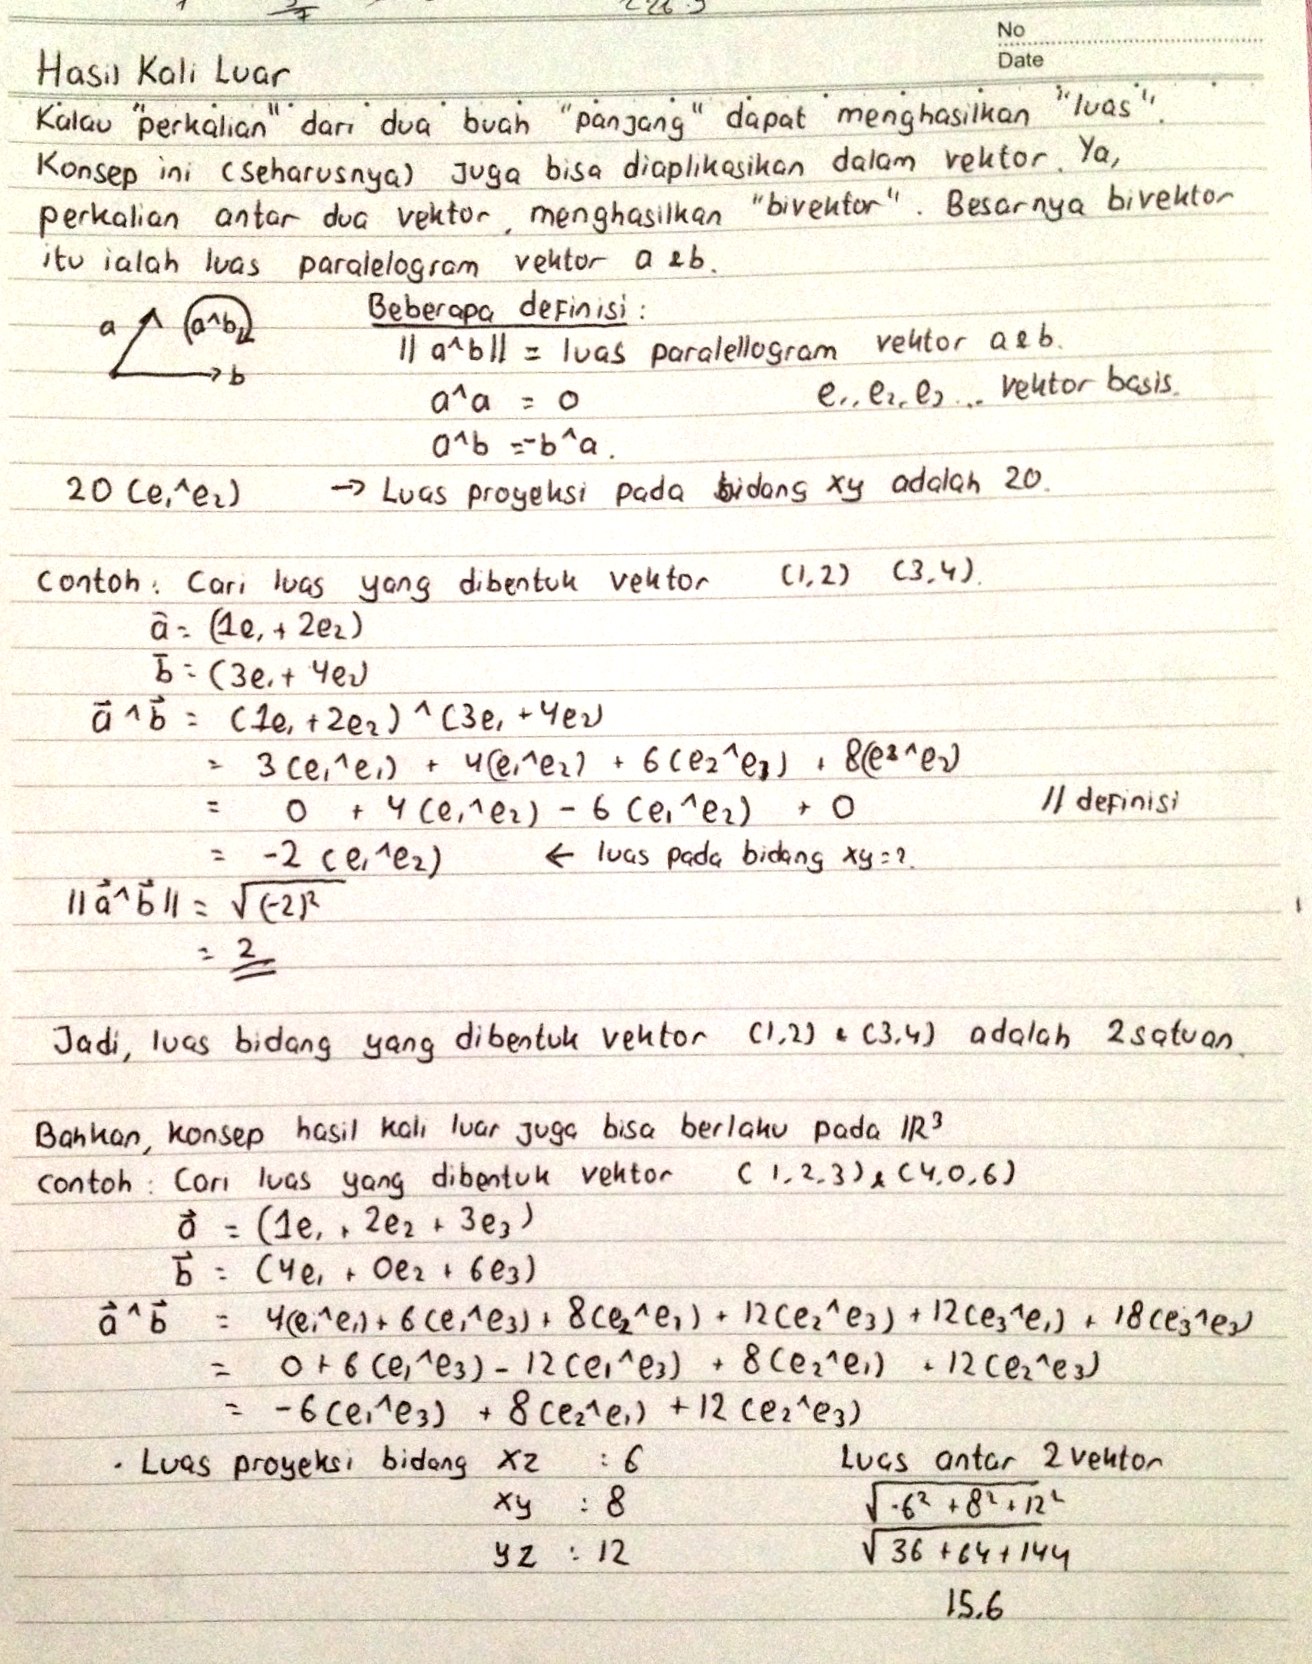 No
Date
Hasil Kali Luar
Kalau "perkalian" dari dua buah "panjang" dapat menghasilkan "luas".
Konsep ini (seharusnya) juga bisa diaplikasikan dalam vektor. Ya,
perkalian antar dua vektor, menghasilkan "bivektor". Besarnya bivektor
itu ialah luas paralelogram vektor a & b.
a (a^b) b
Beberapa definisi :
|| a^b|| = luas paralellogram vektor a & b.
a^a = 0 e₁, e₂, e₃ ... vektor basis.
a^b = -b^a.
20 (e₁^e₂) → Luas proyeksi pada bidang xy adalah 20.
Contoh : Cari luas yang dibentuk vektor (1,2) (3,4).
a = (1e₁ + 2e₂)
b = (3e₁ + 4e₂)
a⃗ ^ b⃗ = (1e₁ + 2e₂) ^ (3e₁ + 4e₂)
= 3(e₁^e₁) + 4(e₁^e₂) + 6(e₂^e₁) + 8(e₂^e₂)
= 0 + 4(e₁^e₂) - 6(e₁^e₂) + 0 // definisi
= -2 (e₁^e₂) ← luas pada bidang xy = 2.
||a⃗^b⃗|| = √(-2)²
= 2
Jadi, luas bidang yang dibentuk vektor (1,2) & (3,4) adalah 2 satuan.
Bahkan, konsep hasil kali luar juga bisa berlaku pada IR³
Contoh : Cari luas yang dibentuk vektor (1,2,3) & (4,0,6)
a⃗ = (1e₁ + 2e₂ + 3e₃)
b⃗ = (4e₁ + 0e₂ + 6e₃)
a⃗ ^ b⃗ = 4(e₁^e₁) + 6(e₁^e₃) + 8(e₂^e₁) + 12(e₂^e₃) + 12(e₃^e₁) + 18(e₃^e₃)
= 0 + 6(e₁^e₃) - 12(e₁^e₃) + 8(e₂^e₁) + 12(e₂^e₃)
= -6(e₁^e₃) + 8(e₂^e₁) + 12(e₂^e₃)
· Luas proyeksi bidang xz : 6 Luas antar 2 vektor
xy : 8 √-6² + 8² + 12²
yz : 12 √36 + 64 + 144
15.6